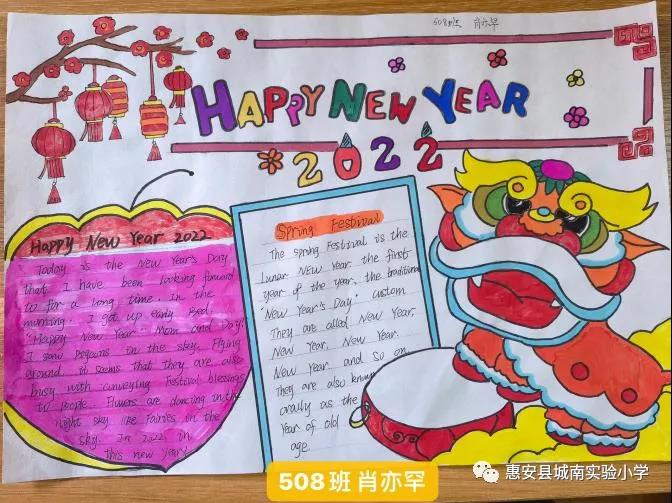 508班 肖亦罕
HAPPY NEW YEAR
2022
Happy New Year 2022
Today is the New Year's Day
that I have been looking forward
to for a long time. In the
morning. I get up early. Red,
"Happy New Year. Mom and Day.
I saw Pegauns in the sky. Flying
around. it seems that they are also
busy with conveying Festival blessings
to People. Flowers are dancing in the
night sky like Fairies in the
sky. In 2022, in
this new year!
Spring Festival
The spring Festival is the
Lunar New Year the first
year of the year, the traditional
"New Year's Day" custom
They are called New Year,
New Year, New Year
New Year and so on
They are also known
orally as the
Year of old
age.
508班 肖亦罕
惠安县城南实验小学